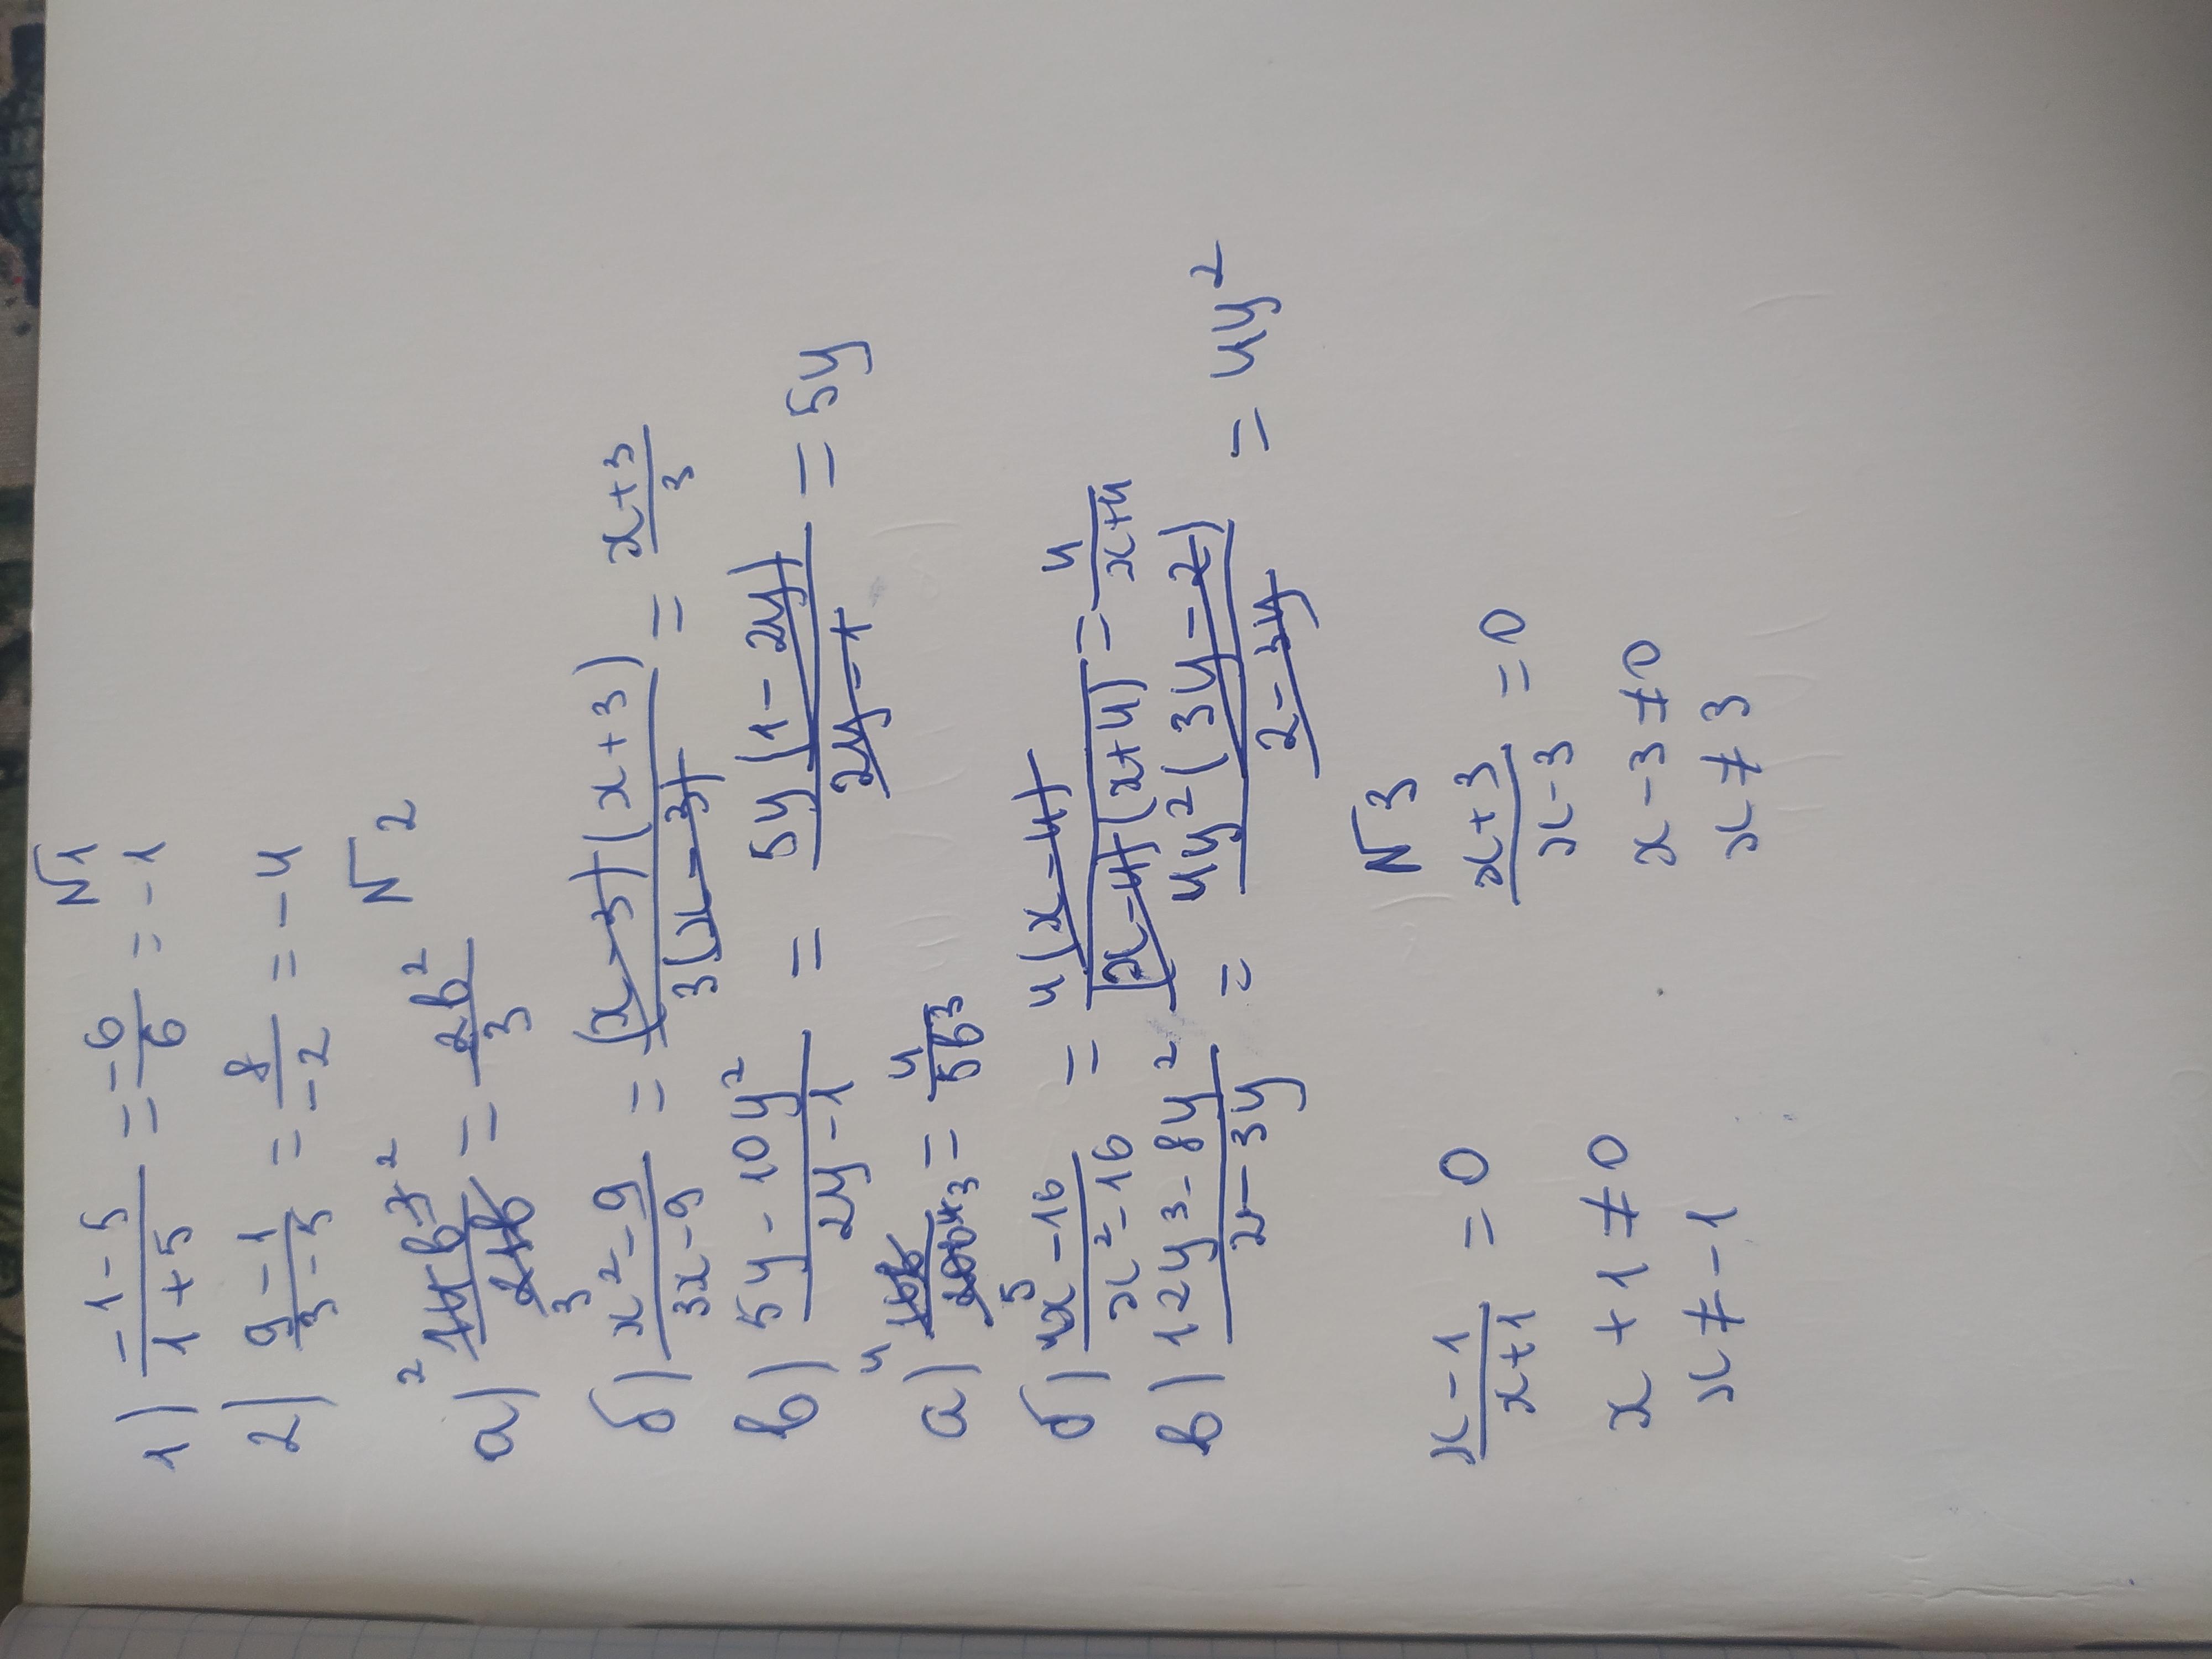 N1
1) (-1-5)/(1+5) = -6/6 = -1
2) (9-1)/(3-5) = 8/-2 = -4
N2
a) 14b³/21b = 2b²/3
б) (x²-9)/(3x-9) = (x-3)(x+3)/3(x-3) = (x+3)/3
в) (5y-10y²)/(2y-1) = 5y(1-2y)/(2y-1) = 5y
a) = 4/5b³
б) (4x-16)/(x²-16) = 4(x-4)/(x-4)(x+4) = 4/(x+4)
в) (12y³-8y²)/(2-3y) = 4y²(3y-2)/(2-3y) = 4y²
N3
(x-1)/(x+1) = 0 (x+3)/(x-3) = 0
x+1≠0 x-3≠0
x≠-1 x≠3